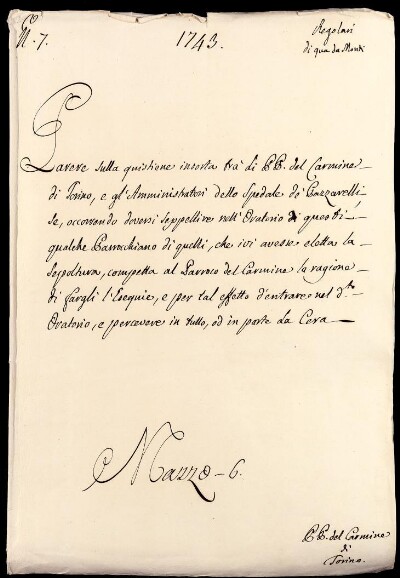 N. 7.
1743.
Regolari
di qua da Monti
Parere sulla quistione insorta trà li PP. del Carmine
di Torino, e gl'Amministratori dello Spedale dè Pazzarelli
se, occorrendo doversi seppellire nell'Oratorio di questi
qualche Parrochiano di quelli, che ivi avesse eletta la
sepoltura, competa al Parroco del Carmine la ragione
di fargli l'Esequie, e per tal effetto d'entrare nel d.to
Oratorio, e percevere in tutto, od in parte la Cera
Mazzo - 6.
PP. del Carmine
di
Torino.